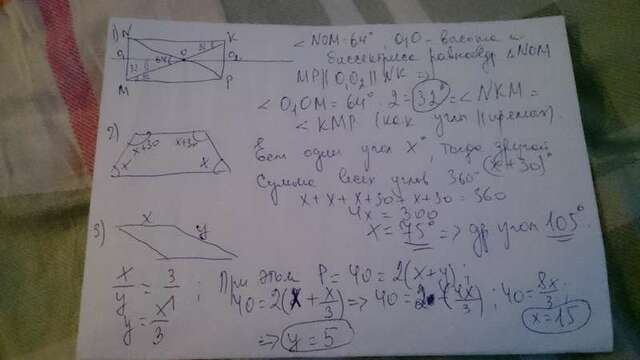 1) N K
O₁ 32 64° O 32 O₂
M P
∠NOM = 64°, O₁O - высота и
биссектриса равнобедр. ΔNOM
MP || O₁O₂ || NK ⇒
∠O₁OM = 64° : 2 = 32° = ∠NKM =
∠KMP. (как углы || прямых).
2) x+30 x+30
x x
Если один угол x°, тогда другой (x+30)°
Сумма всех углов 360°
x + x + x+30 + x+30 = 360
4x = 300
x = 75° ⇒ др. угол 105°.
3) x y
x/y = 3/1 ; При этом P = 40 = 2(x+y);
y = x/3
40 = 2(x + x/3) ⇒ 40 = 2·(4x/3) ; 40 = 8x/3 ;
x = 15
⇒ y = 5